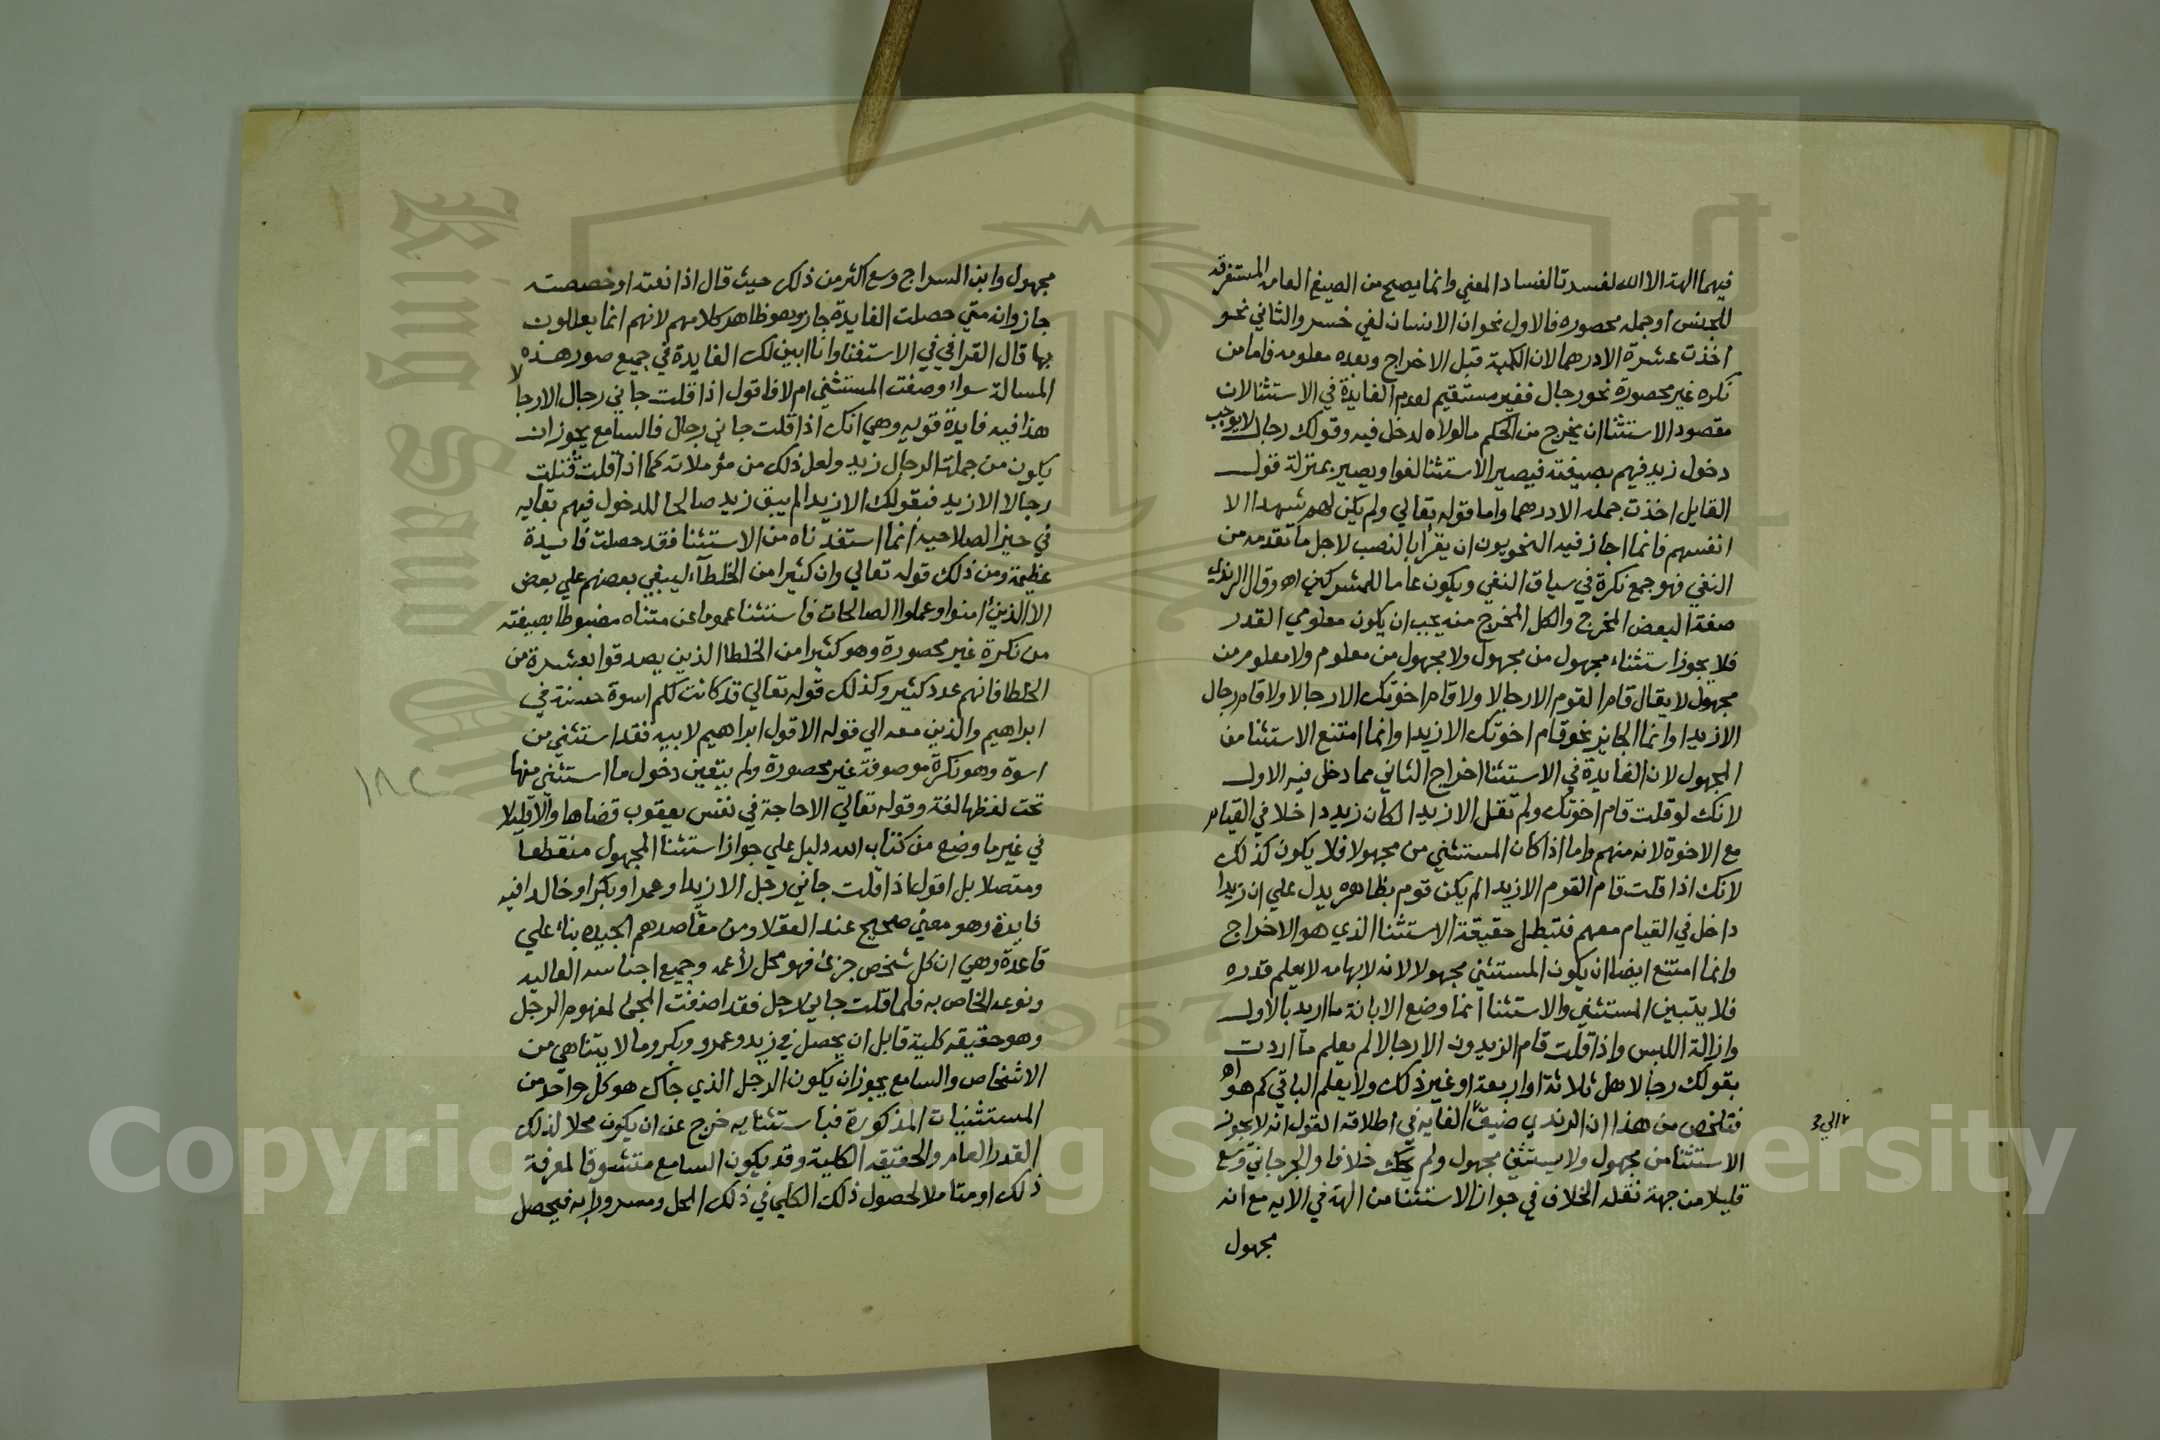 فيهما الهة الا الله لفسدتا لفساد المعني وانما يصح من الصيغ العامه المستغرقه
للجنس او جمله محصوره فالاول نحو ان الانسان لفي خسر والثاني نحو
اخذت عشرة الا درهما لان الكمية قبل الاخراج وبعده معلومه فاما من
نكره غير محصورة نحو رجال فغير مستقيم لعدم الفايدة في الاستثنا لان
مقصود الاستثنا ان يخرج من الحكم ما لولاه لدخل فيه وقولك رجال لا يوجب
دخول زيد فيهم بصيغته فيصير الاستثنا لغوا ويصير بمنزلة قول
القايل اخذت جمله الا درهما واما قوله تعالي ولم يكن لهم شهدا الا
انفسهم فانما اجاز فيه النحويون ان يقرا بالنصب لاجل ما تقدمه من
النفي فهو جمع نكرة في سياق النفي ويكون عاما للمشركين اه وقال الرندي
صفة البعض المخرج والكل المخرج منه يجب ان يكون معلومي القدر
فلا يجوز استثناء مجهول من مجهول ولا مجهول من معلوم ولا معلوم من
مجهول لا يقال قام القوم الا رجالا ولا قام اخوتك الا رجالا ولا قام رجال
الا زيدا وانما الجايز نحو قام اخوتك الا زيدا وانما امتنع الاستثنا من
المجهول لان الفايدة في الاستثنا اخراج الثاني مما دخل فيه الاول
لانك لو قلت قام اخوتك ولم تقل الا زيدا لكان زيد داخلا في القيام
مع الاخوة لانه منهم واما اذا كان المستثني من مجهولا فلا يكون كذلك
لانك اذا قلت قام القوم الا زيدا لم يكن قوم بظاهره يدل علي ان زيدا
داخل في القيام معهم فتبطل حقيقة الاستثنا الذي هو الاخراج
وانما امتنع ايضا ان يكون المستثني مجهولا لانه لابهامه لا يعلم قدره
فلا يتبين المستثني والاستثنا انما وضع لابانة ما اريد بالاول
وازالة اللبس واذا قلت قام الزيدون الا رجالا لم يعلم ما اردت
بقولك رجالا هل ثلاثة او اربعة او غير ذلك ولا يعلم الباقي كم هو اه
فتلخص من هذا ان الرندي ضيق الغايه في اطلاقه القول انه لا يجوز
الاستثنا من مجهول ولا يستثني مجهول ولم يحك خلافا والجرجاني وسع
قليلا من جهة نقله الخلاف في جواز الاستثنا من الهة في الايه مع انه
مجهول
مجهول وابن السراج وسع اكثر من ذلك حيث قال اذا نعته او خصصته
جاز وانه متي حصلت الفايدة جاز وهو ظاهر كلامهم لانهم انما يعللون
بها قال القرافي في الاستغنا وانا ابين لك الفايدة في جميع صور هذه
المسالة سواء وصفت المستثني ام لا فاقول اذا قلت جاني رجال الا رجالا
هذا فيه فايدة قويه وهي انك اذا قلت جاني رجال فالسامع يجوز ان
يكون من جملة الرجال زيد ولعل ذلك من مؤملاته كما اذا قلت قتلت
رجالا الا زيد فبقولك الا زيدا لم يبق زيد صالحا للدخول فيهم بقايه
في حيز الصلاحيه انما استفدناه من الاستثنا فقد حصلت فايدة
عظيمة ومن ذلك قوله تعالي وان كثيرا من الخلطاء ليبغي بعضهم علي بعض
الا الذين امنوا وعملوا الصالحات فاستثنا عموما غير متناه مضبوطا بصيغته
من نكرة غير محصورة وهو كثيرا من الخلطا الذين يصدقوا بعشرة من
الخلطا فانهم عدد كثير وكذلك قوله تعالي قد كانت لكم اسوة حسنة في
ابراهيم والذين معه الي قوله الا قول ابراهيم لابيه فقد استثني من
اسوة وهو نكرة موصوفة غير محصورة ولم يتعين دخول ما استثني منها
تحت لفظها لغة وقوله تعالي الا حاجة في نفس يعقوب قضاها والا قليلا
في غير ما وضع من كتاب الله دليل علي جواز استثنا المجهول منقطعا
ومتصلا بل اقول اذا قلت جاني رجل الا زيدا وعمرا وبكرا وخالدا فيه
فايدة وهو معني صحيح عند العقلا ومن مقاصدهم الجيده بناء علي
قاعدة وهي ان كل شخص جزئ فهو محل لأعمه وجميع اجناسه العاليه
ونوعه الخاص به فلما قلت جاني رجل فقد اضفت المجئ لمفهوم الرجل
وهو حقيقه كلية قابل ان يحصل في زيد وعمرو وبكر وما لا يتناهي من
الاشخاص والسامع يجوز ان يكون الرجل الذي جاك هو كل واحد من
المستثنيات المذكورة فباستثنايه خرج عن ان يكون محلا لذلك
القدر العام والحقيقه الكلية وقد يكون السامع متشوقا لمعرفة
ذلك او متاملا لحصول ذلك الكلي في ذلك المحل ومسرورا به فيحصل
١٨٢